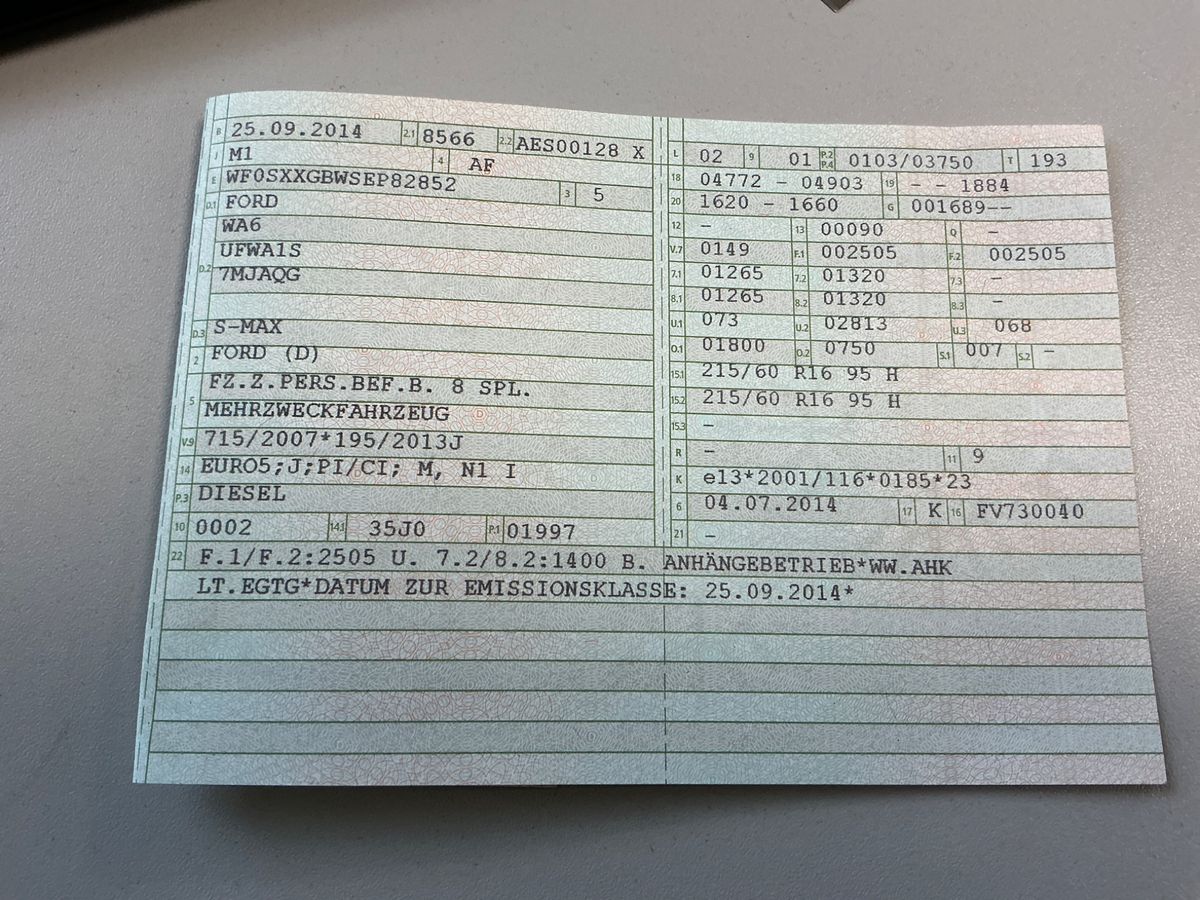 B 25.09.2014 2.1 8566 2.2 AES00128 X
J M1 4 AF
E WF0SXXGBWSEP82852 3 5
D.1 FORD
D.2 WA6
UFWA1S
7MJAQG
D.3 S-MAX
2 FORD (D)
5 FZ.Z.PERS.BEF.B. 8 SPL.
MEHRZWECKFAHRZEUG
V.9 715/2007*195/2013J
14 EURO5;J;PI/CI; M, N1 I
P.3 DIESEL
10 0002 14.1 35J0 P.1 01997
L 02 9 01 P.2 P.4 0103/03750 T 193
18 04772 - 04903 19 - - 1884
20 1620 - 1660 G 001689--
12 - 13 00090 Q -
V.7 0149 F.1 002505 F.2 002505
7.1 01265 7.2 01320 7.3 -
8.1 01265 8.2 01320 8.3 -
U.1 073 U.2 02813 U.3 068
O.1 01800 O.2 0750 S.1 007 S.2 -
15.1 215/60 R16 95 H
15.2 215/60 R16 95 H
15.3 -
R - 11 9
K e13*2001/116*0185*23
6 04.07.2014 17 K 16 FV730040
21 -
22 F.1/F.2:2505 U. 7.2/8.2:1400 B. ANHÄNGEBETRIEB*WW.AHK
LT.EGTG*DATUM ZUR EMISSIONSKLASSE: 25.09.2014*